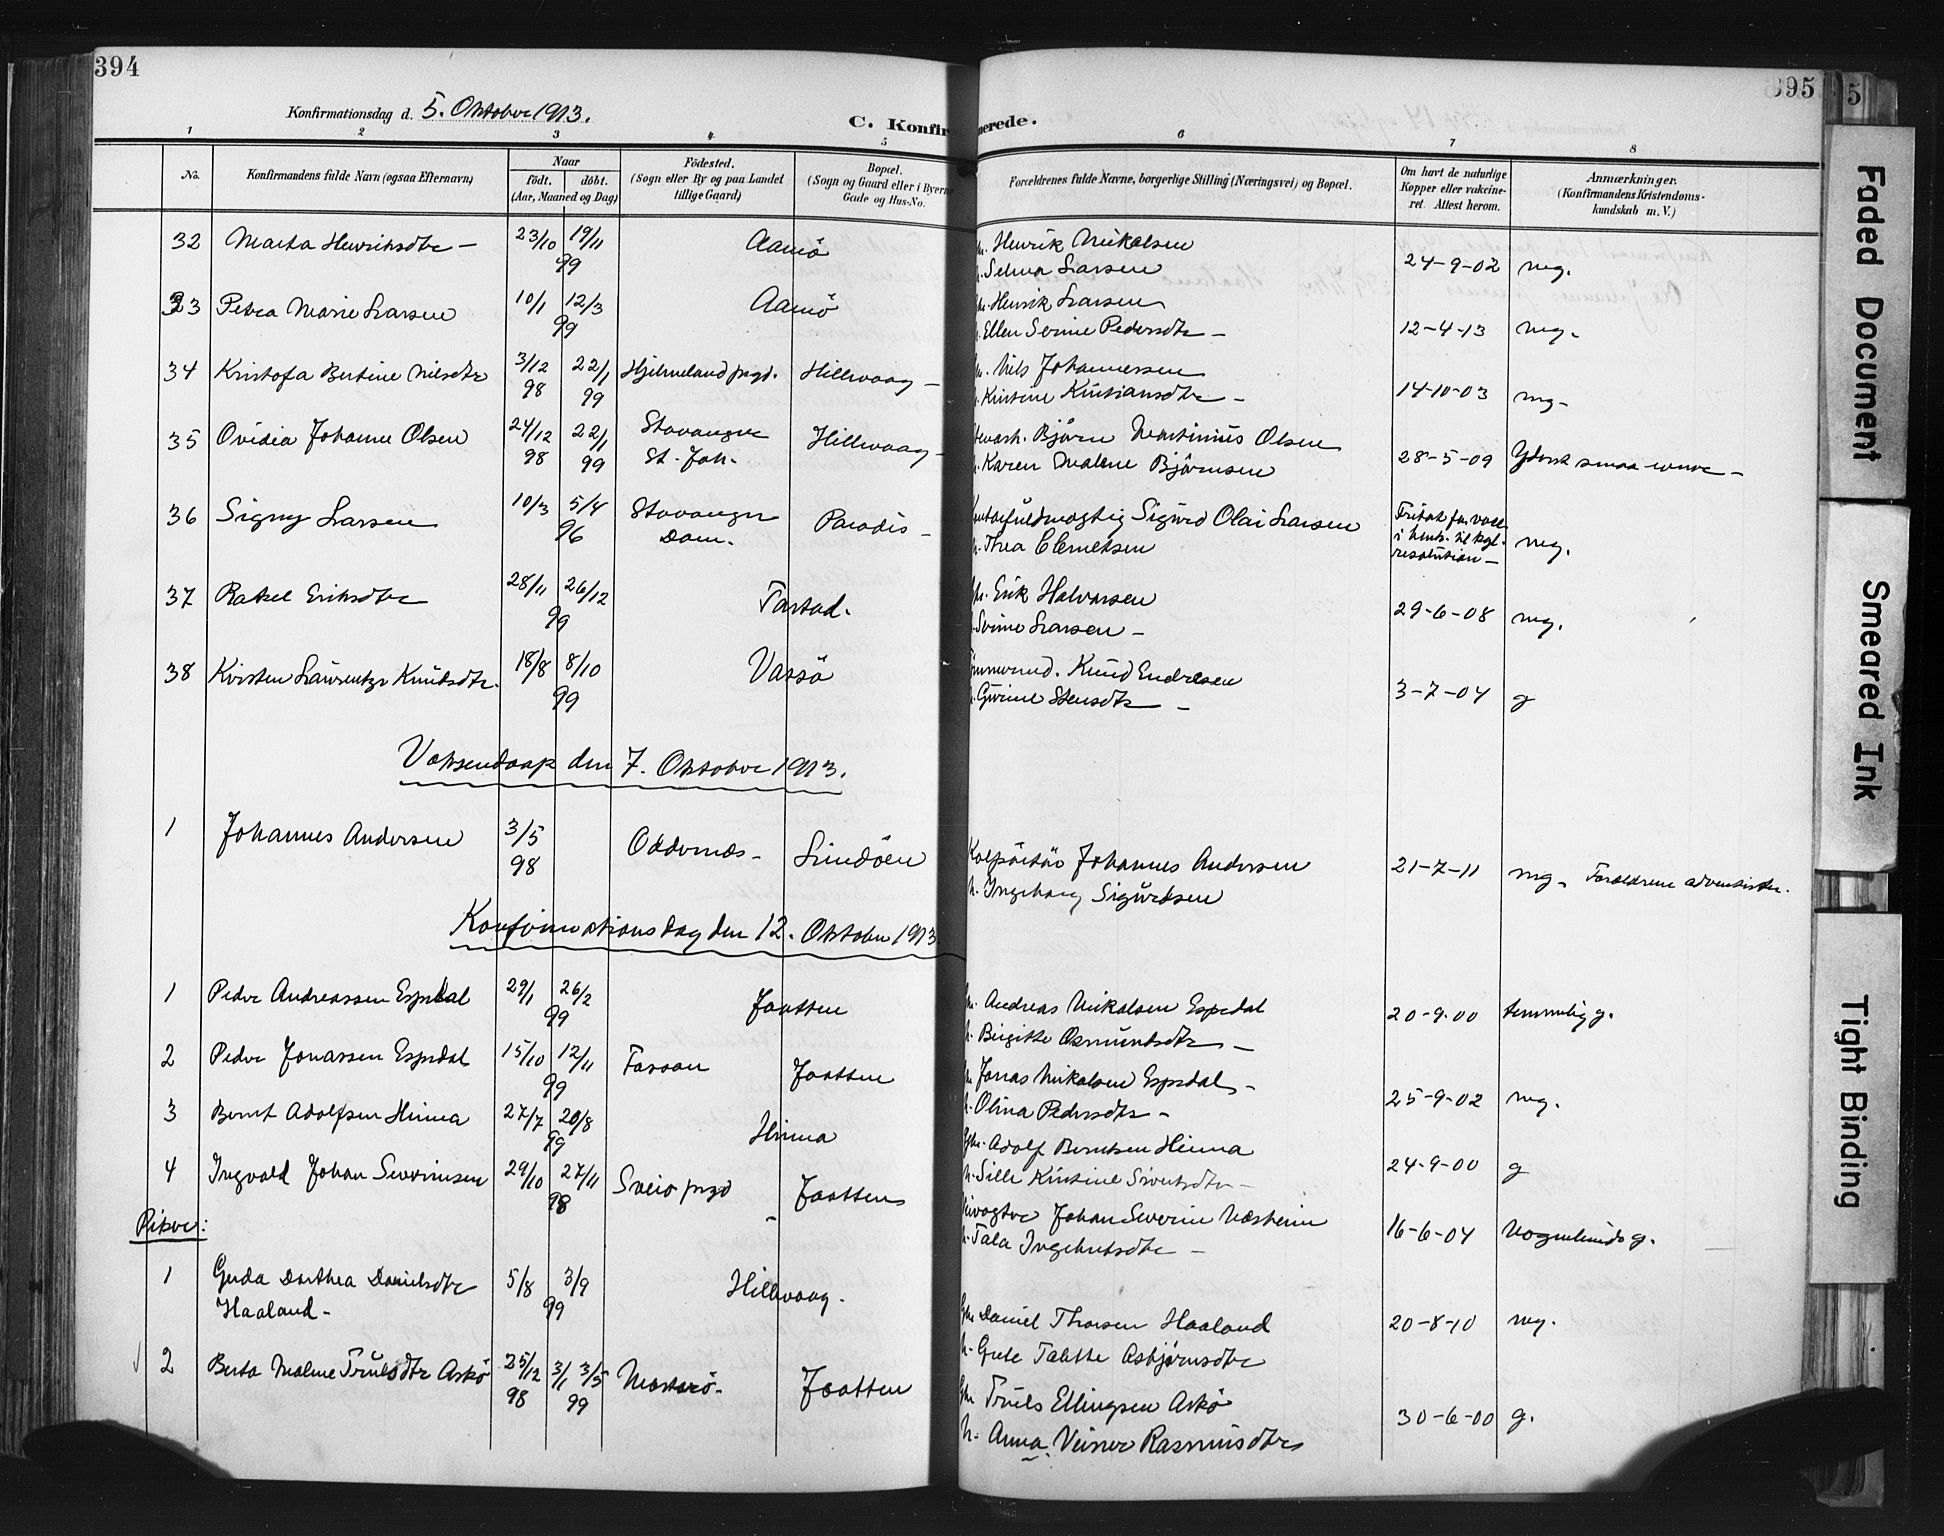 394
395
5
Konfirmationsdag d. 5. Oktober 1913.
C. Konfirmerede.
1 2 3 4 5 6 7 8
No.
Konfirmandens fulde Navn (ogsaa Efternavn)
Naar
født. døbt.
(Aar, Maaned og Dag)
Fødested.
(Sogn eller By og paa Landet
tillige Gaard)
Bopæl.
(Sogn og Gaard eller i Byerne
Gade og Hus-No.
Forældrenes fulde Navne, borgerlige Stilling (Næringsvei) og Bopæl.
Om havt de naturlige
Kopper eller vakcine-
ret. Attest herom.
Anmærkninger.
(Konfirmandens Kristendoms-
kundskab m. V.)
32 Marta Henriksdtr – 23/10 19/11 Aamø Henrik Nikolsen
99 Selma Larsen 24-9-02 mg.
33 Petra Marie Larsen 10/1 12/3 Aamø Henrik Larsen
99 Ellen Serine Pedersdtr – 12-4-13 mg.
34 Kristofa Bertine Nilsdtr 3/12 22/1 Hjelmeland prgd. Hillevaag – Nils Johannessen
98 99 Kristine Kristiansdtr – 14-10-03 mg –
35 Ovidia Johanne Olsen 24/12 22/1 Stavanger Hillevaag – Bjørn Martinius Olsen
98 99 St. Joh. Karen Malene Bjørnsen 28-5-09 Ydersk smaa evner –
36 Signy Larsen 10/3 5/4 Stavanger Paradis – Sigurd Olai Larsen
96 Dom. Thea Clemetsen
Fritat for vacc.
i henh. til kgl.
resolution –
mg.
37 Rakel Eriksdtr 28/11 26/12 Tastad. Erik Halvorsen
99 Serine Larsen – 29-6-08 mg.
38 Kirsten Laurentze Knutsdtr. 18/8 8/10 Vassø Knud Endresen
99 Gurine Stensdtr – 3-7-04 g
Voksendaap den 7. Oktober 1913.
1 Johannes Andersen 3/5 Oddernes – Lindøen Kolportør Johannes Andersen
98 Ingeborg Sigurdsen 21-7-11 mg. Forældrene adventister.
Konfirmationsdag den 12. Oktober 1913.
1 Peder Andreassen Espedal 29/1 26/2 Jaatten Andreas Nikolsen Espedal
99 Birgitte Osmundsdtr – 20-9-00 temmelig g.
2 Peder Jonassen Espedal 15/10 12/11 Fossan Jaatten Jonas Nikolsen Espedal –
99 Olina Pedersdtr – 25-9-02 mg.
3 Bernt Adolfsen Hinna 27/7 20/8 Hinna Gm. Adolf Berntsen Hinna
99 Sille Kristine Sivertsdtr – 24-9-00 g
4 Ingvald Johan Severinsen 29/10 27/11 Sveio prgd – Jaatten Johan Severin Næsheim
98 Tala Ingebretsdtr – 16-6-04 g.
Piker:
1 Gerda Dorthea Danielsdtr 5/8 3/9 Hillevaag. Daniel Thorsen Haaland
Haaland – 99 Grete Tolette Asbjørnsdtr 20-8-10 mg.
2 Berta Malene Trulsdtr Askø 25/12 3/1 3/5 Mosterø – Jaatten Truls Ellingsen Askø
98 99 Anna Rasmusdtr 30-6-00 g.
Faded Document
Smeared Ink
Tight Binding